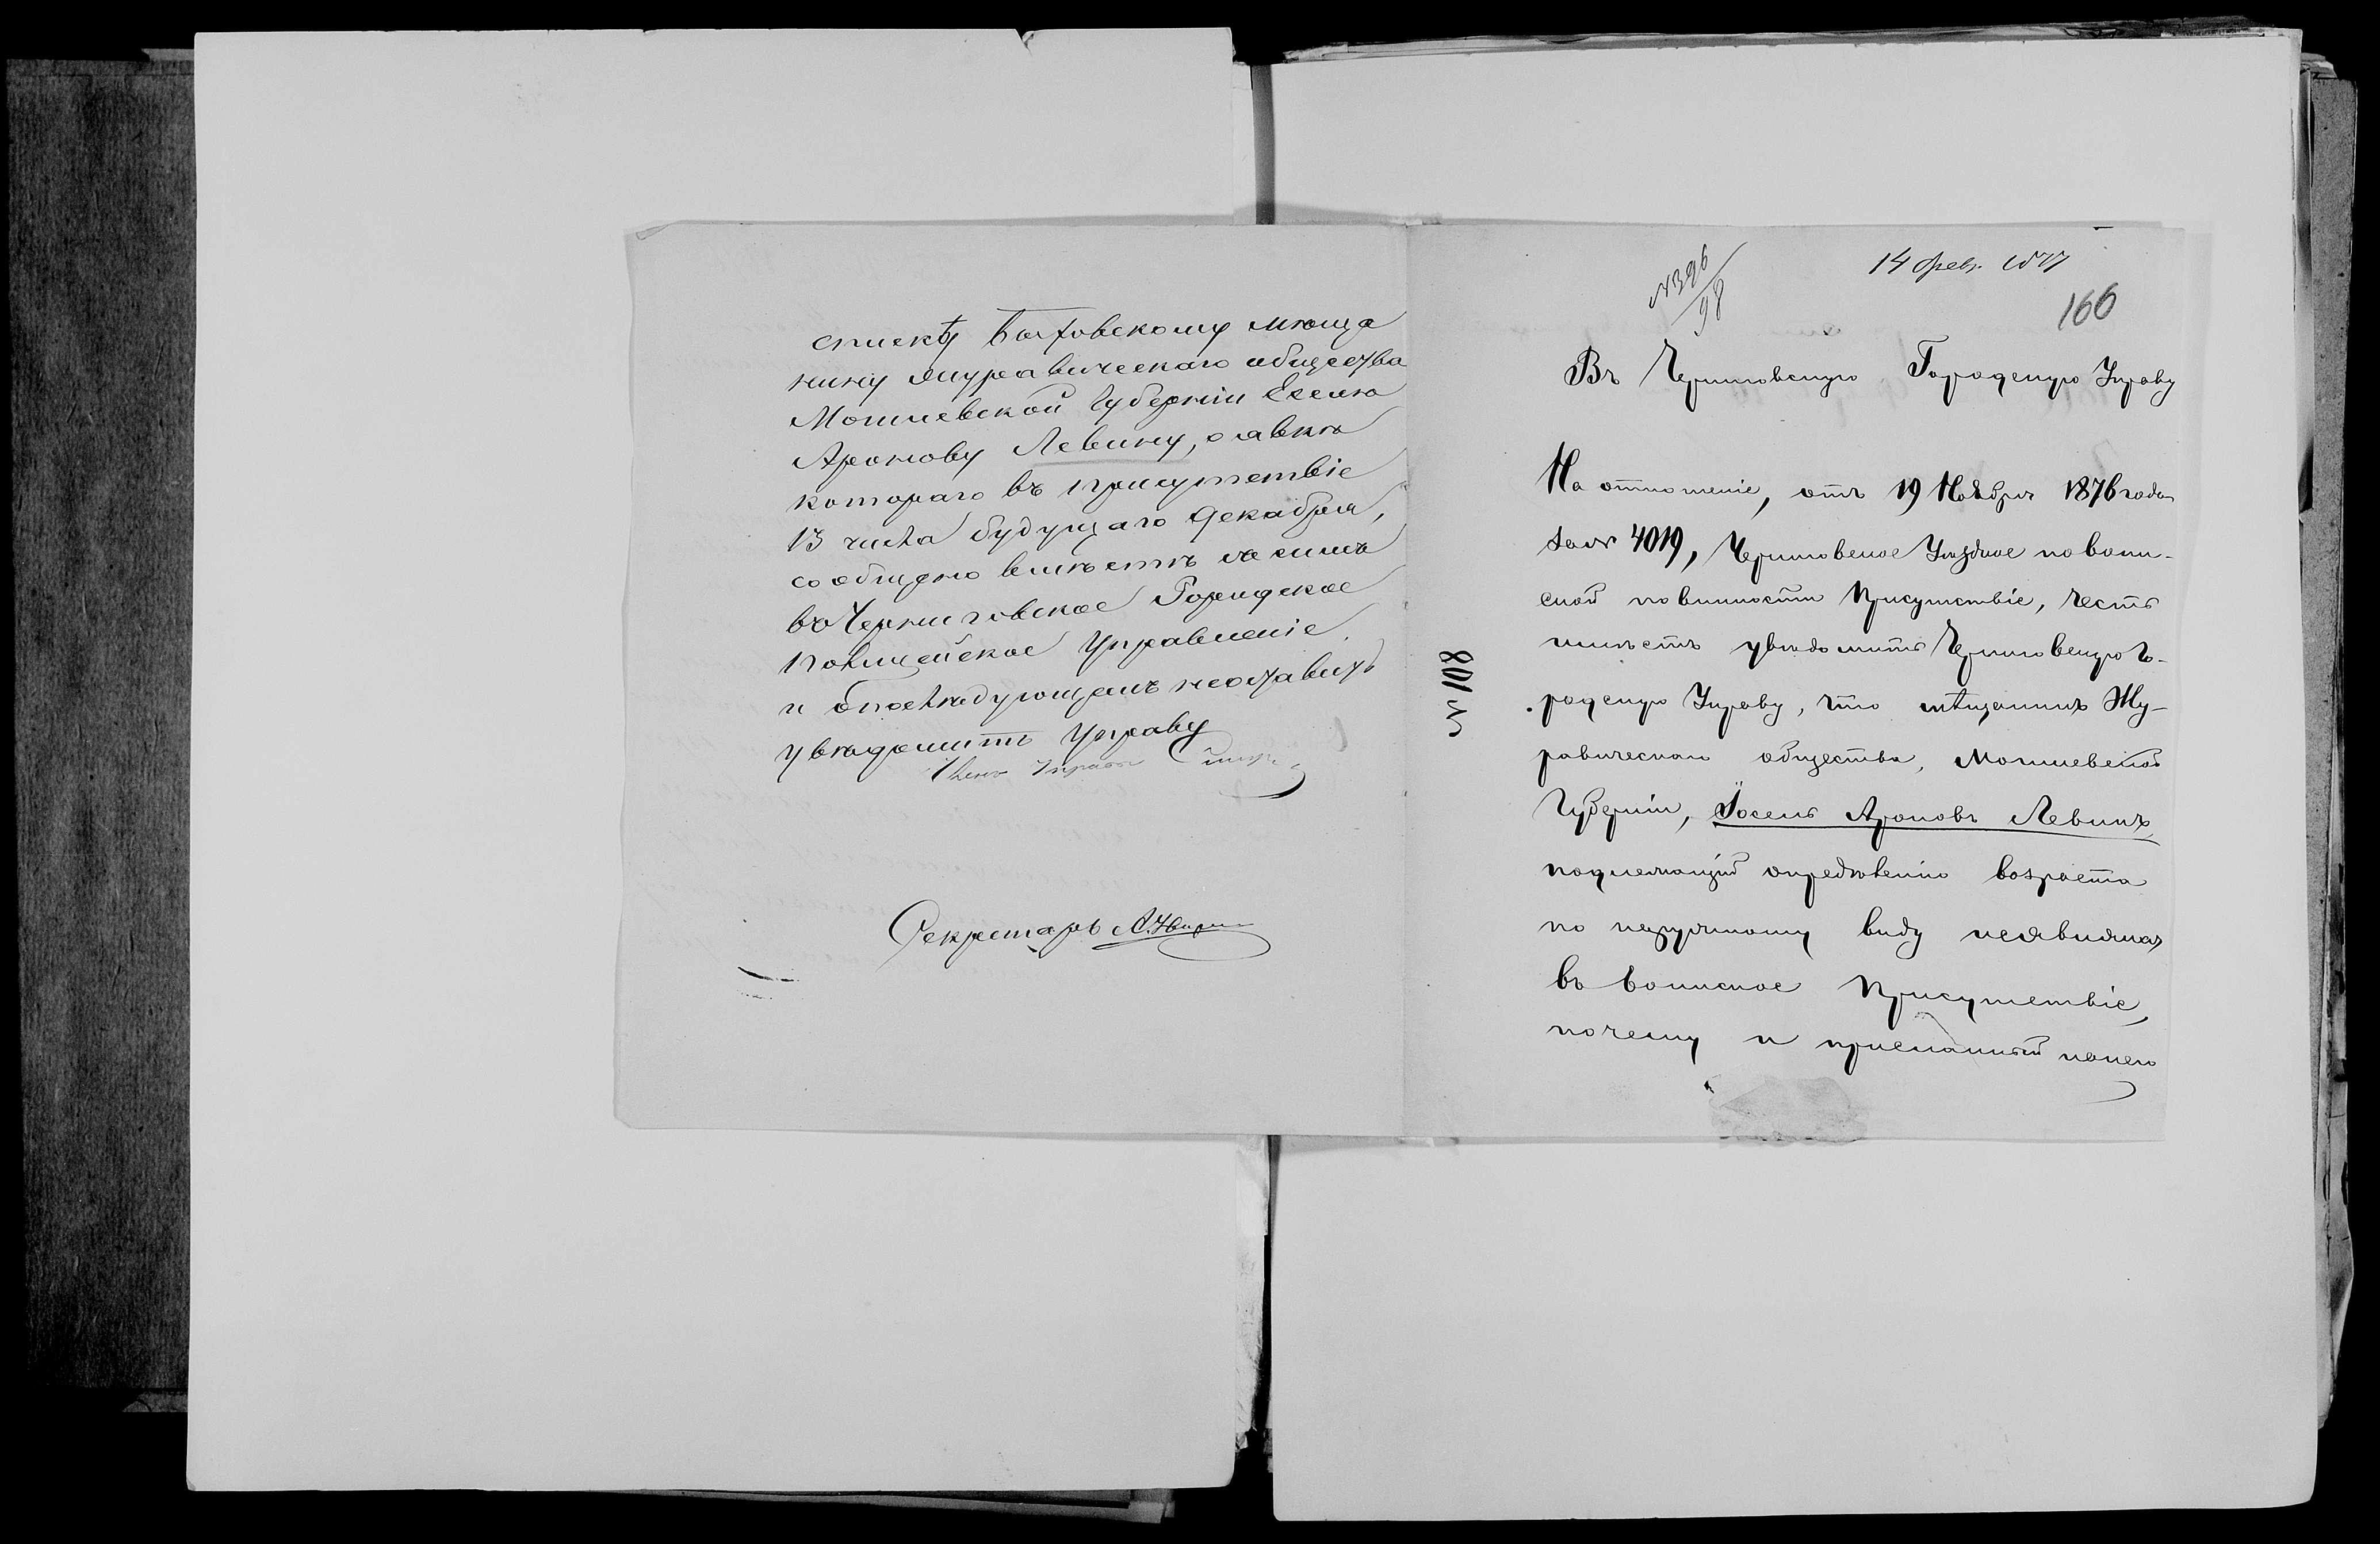 списокъ Быховскому мѣща
нину Журавическаго общества
Могилевской Губерніи Еселю
Аронову Левину, о явкѣ
котораго въ присутствіе
13 числа будущаго Декабря,
сообщено вмѣстѣ съ симъ
въ Черниговское Городское
Полицейское Управленіе
и о послѣдующемъ не оставить
увѣдомить Управу
Членъ Управы
Секретарь
№ 396/98
14 февр. 1877
166
Въ Черниговскую Городскую Управу
На отношеніе, отъ 19 Ноября 1876 года
за № 4019, Черниговское Уѣздное по воин-
ской повинности Присутствіе, честь
имѣетъ увѣдомить Черниговскую Го-
родскую Управу, что мѣщанинъ Жу-
равическаго общества, Могилевской
Губерніи, Іосель Ароновъ Левинъ,
подлежащій опредѣленію возраста
по наружному виду неявился
въ Воинское Присутствіе,
почему и присланный на него
№ 108